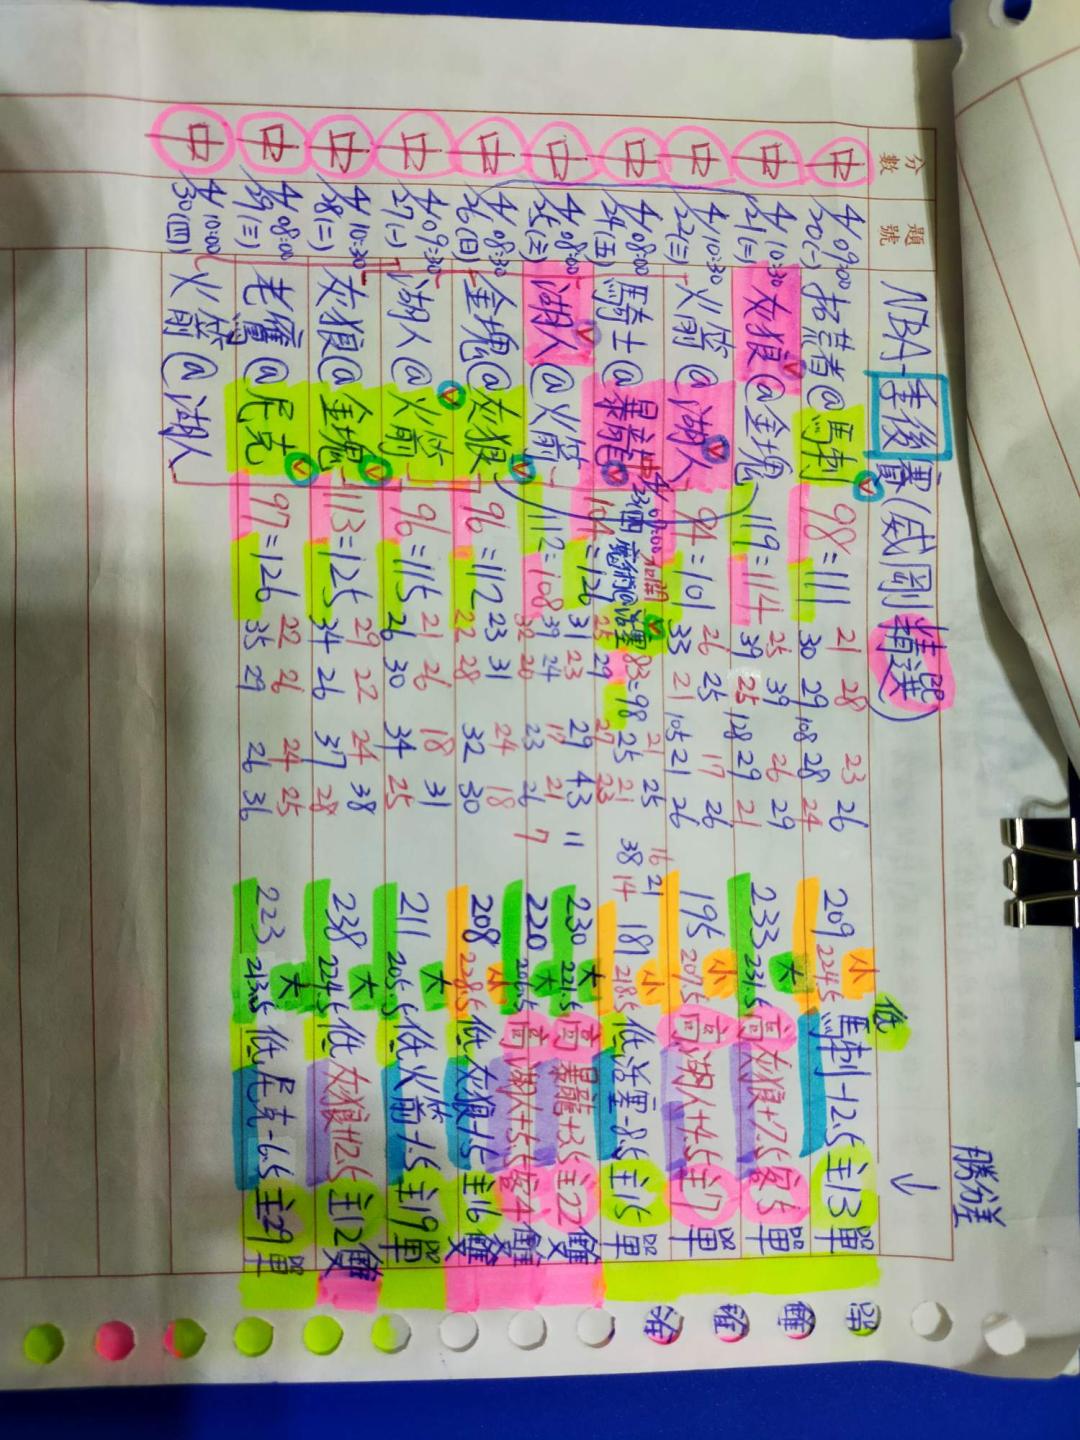 勝分差
分數 題號 NBA-季後賽(威剛精選) 低 ↓
中 4/20(一) 09:00 拓荒者@馬刺 98=111 21 28 23 26 30 29 28 24 209 小 224.5 馬刺-12.5 主13 單
中 4/21(二) 10:30 灰狼@金塊 119=114 25 39 26 29 39 25 29 21 233 大 231.5 高 灰狼+7.5 客5 單
中 4/22(三) 10:30 火箭@湖人 94=101 26 25 17 26 33 21 21 26 195 小 207.5 高 湖人+4.5 主7 單
4/23(四) 07:00 魔術@活塞 83=98 25 21 21 16 21 25 38 14 181 小 218.5 低 活塞-8.5 主15 單
中 4/24(五) 08:00 騎士@暴龍 104=126 25 29 27 23 31 23 29 43 230 大 221.5 高 暴龍+3.5 主22 雙
中 4/25(六) 08:00 湖人@火箭 112=108 39 24 17 21 11 32 20 23 26 7 220 大 206.5 高 湖人+5.5 客4 雙
中 4/26(日) 08:30 金塊@灰狼 96=112 23 31 24 18 22 28 32 30 208 小 228.5 低 灰狼-1.5 主16 雙
中 4/27(一) 09:30 湖人@火箭 96=115 21 26 18 31 26 30 34 25 211 大 205.5 低 火箭-1.5 主19 單
中 4/28(二) 10:30 灰狼@金塊 113=125 29 22 24 38 34 26 37 28 238 大 224.5 低 灰狼+12.5 主12 雙
中 4/29(三) 08:00 老鷹@尼克 97=126 22 26 24 25 35 29 26 36 223 大 213.5 低 尼克-6.5 主29 單
中 4/30(四) 10:00 火箭@湖人
單
雙